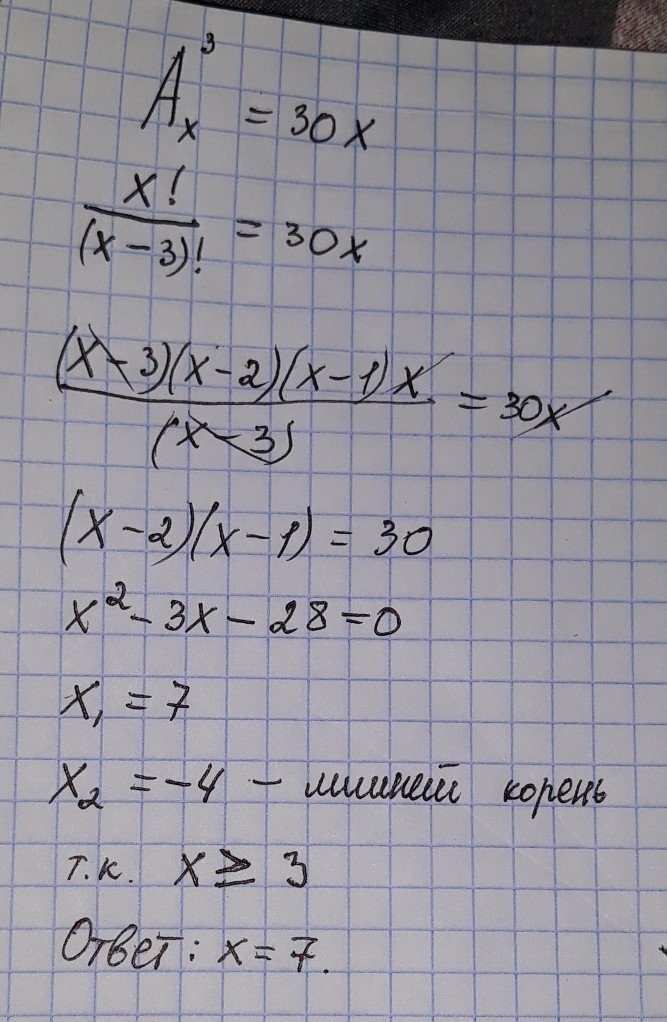 A³ₓ = 30x
x! / (x-3)! = 30x
(x-3)(x-2)(x-1)x / (x-3) = 30x
(x-2)(x-1) = 30
x² - 3x - 28 = 0
x₁ = 7
x₂ = -4 - лишний корень
т.к. x ≥ 3
Ответ: x = 7.